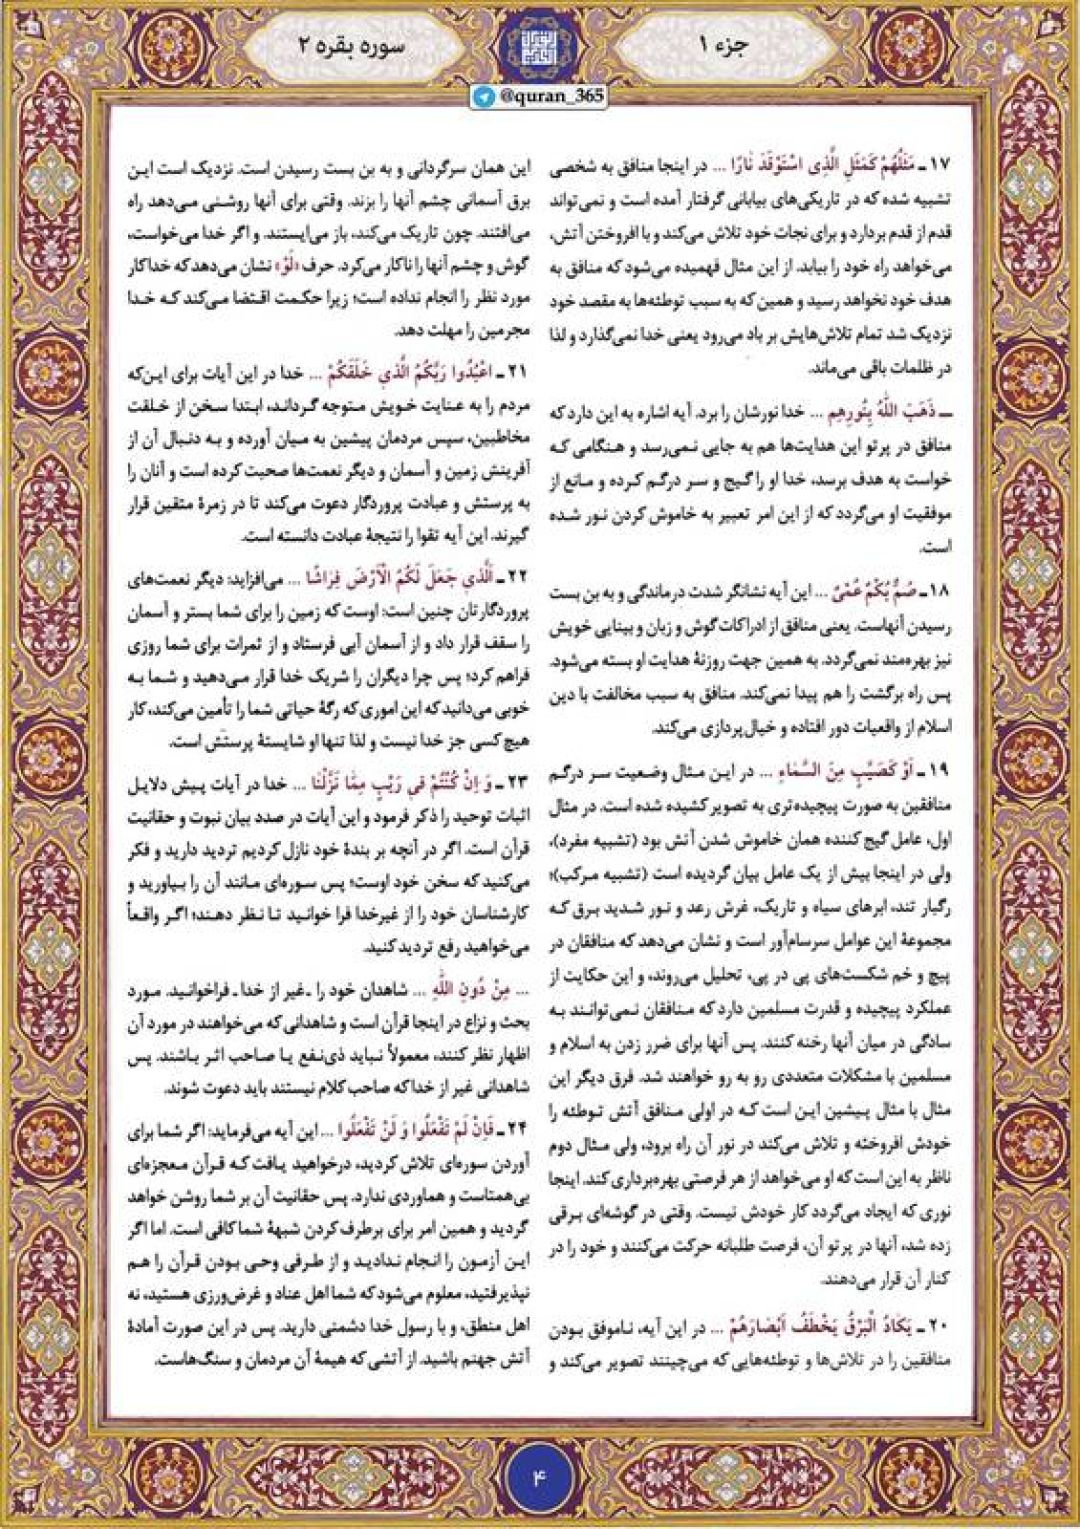 جزء ۱
سوره بقره ۲
@quran_365
۱۷ـ مَثَلُهُمْ كَمَثَلِ الَّذِي اسْتَوْقَدَ نَارًا ... در اینجا منافق به شخصی
تشبیه شده که در تاریکی‌های بیابانی گرفتار آمده است و نمی‌تواند
قدم از قدم بردارد و برای نجات خود تلاش می‌کند و با افروختن آتش،
می‌خواهد راه خود را بیابد. از این مثال فهمیده می‌شود که منافق به
هدف خود نخواهد رسید و همین‌که به سبب توطئه‌ها به مقصد خود
نزدیک شد تمام تلاش‌هایش بر باد می‌رود یعنی خدا نمی‌گذارد و لذا
در ظلمات باقی می‌ماند.
ـ ذَهَبَ اللّٰهُ بِنُورِهِم ... خدا نورشان را برد. آیه اشاره به این دارد که
منافق در پرتو این هدایت‌ها هم به جایی نمی‌رسد و هنگامی که
خواست به هدف برسد، خدا او را گیج و سر درگم کرده و مانع از
موفقیت او می‌گردد که از این امر تعبیر به خاموش کردن نور شده
است.
۱۸ـ صُمٌّ بُكْمٌ عُمْيٌ ... این آیه نشانگر شدت درماندگی و به بن بست
رسیدن آنهاست. یعنی منافق از ادراکات گوش و زبان و بینایی خویش
نیز بهره‌مند نمی‌گردد. به همین جهت روزنهٔ هدایت او بسته می‌شود.
پس راه برگشت را هم پیدا نمی‌کند. منافق به سبب مخالفت با دین
اسلام از واقعیات دور افتاده و خیال‌پردازی می‌کند.
۱۹ـ اَوْ كَصَيِّبٍ مِنَ السَّمَاءِ ... در این مثال وضعیت سر درگم
منافقین به صورت پیچیده‌تری به تصویر کشیده شده است. در مثال
اول، عامل گیج کننده همان خاموش شدن آتش بود (تشبیه مفرد)،
ولی در اینجا بیش از یک عامل بیان گردیده است (تشبیه مرکب)؛
رگبار تند، ابرهای سیاه و تاریک، غرش رعد و نور شدید برق که
مجموعهٔ این عوامل سرسام‌آور است و نشان می‌دهد که منافقان در
پیچ و خم شکست‌های پی در پی، تحلیل می‌روند، و این حکایت از
عملکرد پیچیده و قدرت مسلمین دارد که منافقان نمی‌توانند به
سادگی در میان آنها رخنه کنند. پس آنها برای ضرر زدن به اسلام و
مسلمین با مشکلات متعددی رو به رو خواهند شد. فرق دیگر این
مثال با مثال پیشین این است که در اولی منافق آتش توطئه را
خودش افروخته و تلاش می‌کند در نور آن راه برود، ولی مثال دوم
ناظر به این است که او می‌خواهد از هر فرصتی بهره‌برداری کند. اینجا
نوری که ایجاد می‌گردد کار خودش نیست. وقتی در گوشه‌ای برقی
زده شد، آنها در پرتو آن، فرصت طلبانه حرکت می‌کنند و خود را در
کنار آن قرار می‌دهند.
۲۰ـ يَكَادُ الْبَرْقُ يَخْطَفُ اَبْصَارَهُمْ ... در این آیه، ناموفق بودن
منافقین را در تلاش‌ها و توطئه‌هایی که می‌چینند تصویر می‌کند و
این همان سرگردانی و به بن بست رسیدن است. نزدیک است این
برق آسمانی چشم آنها را بزند. وقتی برای آنها روشنی می‌دهد راه
می‌افتند. چون تاریک می‌کند، باز می‌ایستند. و اگر خدا می‌خواست،
گوش و چشم آنها را ناکار می‌کرد. حرف «لَوْ» نشان می‌دهد که خدا کار
مورد نظر را انجام نداده است؛ زیرا حکمت اقتضا می‌کند که خدا
مجرمین را مهلت دهد.
۲۱ـ اعْبُدُوا رَبَّكُمُ الَّذِي خَلَقَكُمْ ... خدا در این آیات برای این‌که
مردم را به عنایت خویش متوجه گرداند، ابتدا سخن از خلقت
مخاطبین، سپس مردمان پیشین به میان آورده و به دنبال آن از
آفرینش زمین و آسمان و دیگر نعمت‌ها صحبت کرده است و آنان را
به پرستش و عبادت پروردگار دعوت می‌کند تا در زمرهٔ متقین قرار
گیرند. این آیه تقوا را نتیجهٔ عبادت دانسته است.
۲۲ـ اَلَّذِي جَعَلَ لَكُمُ الْاَرْضَ فِرَاشًا ... می‌افزاید: دیگر نعمت‌های
پروردگارتان چنین است: اوست که زمین را برای شما بستر و آسمان
را سقف قرار داد و از آسمان آبی فرستاد و از ثمرات برای شما روزی
فراهم کرد؛ پس چرا دیگران را شریک خدا قرار می‌دهید و شما به
خوبی می‌دانید که این اموری که رگهٔ حیاتی شما را تأمین می‌کند، کار
هیچ کسی جز خدا نیست و لذا تنها او شایستهٔ پرستش است.
۲۳ـ وَ اِنْ كُنْتُمْ فِي رَيْبٍ مِمَّا نَزَّلْنَا ... خدا در آیات پیش دلایل
اثبات توحید را ذکر فرمود و این آیات در صدد بیان نبوت و حقانیت
قرآن است. اگر در آنچه بر بندهٔ خود نازل کردیم تردید دارید و فکر
می‌کنید که سخن خود اوست؛ پس سوره‌ای مانند آن را بیاورید و
کارشناسان خود را از غیرخدا فرا خوانید تا نظر دهند؛ اگر واقعاً
می‌خواهید رفع تردید کنید.
... مِنْ دُونِ اللّٰهِ ... شاهدان خود را ـ غیر از خدا ـ فراخوانید. مورد
بحث و نزاع در اینجا قرآن است و شاهدانی که می‌خواهند در مورد آن
اظهار نظر کنند، معمولاً نباید ذی‌نفع یا صاحب اثر باشند. پس
شاهدانی غیر از خدا که صاحب کلام نیستند باید دعوت شوند.
۲۴ـ فَاِنْ لَمْ تَفْعَلُوا وَ لَنْ تَفْعَلُوا ... این آیه می‌فرماید: اگر شما برای
آوردن سوره‌ای تلاش کردید، درخواهید یافت که قرآن معجزه‌ای
بی‌همتاست و هماوردی ندارد. پس حقانیت آن بر شما روشن خواهد
گردید و همین امر برای برطرف کردن شبههٔ شما کافی است. اما اگر
این آزمون را انجام ندادید و از طرفی وحی بودن قرآن را هم
نپذیرفتید، معلوم می‌شود که شما اهل عناد و غرض‌ورزی هستید، نه
اهل منطق، و با رسول خدا دشمنی دارید. پس در این صورت آمادهٔ
آتش جهنم باشید. از آتشی که هیمهٔ آن مردمان و سنگ‌هاست.
۴